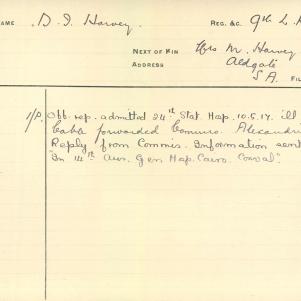 NAME D. I. Harvey. REG. &C. 9th L.
NEXT OF KIN Mrs M. Harvey
ADDRESS Aldgate
S A. FIL
I/P. Off. rep. admitted 24th Stat. Hop. 10.5.17. ill
Cable forwarded Commis. Alexandri
Reply from Commis. Information sent
"In 14th Aus. Gen Hop. Cairo. Conval"